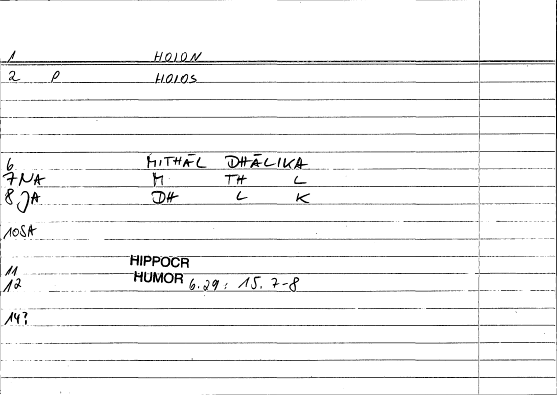 1 HOION
2 P HOIOS
6 MITHĀL DHĀLIKA
7 NA M TH L
8 JA DH L K
10 SA
11 HIPPOCR
12 HUMOR 6.29: 15. 7-8
14?